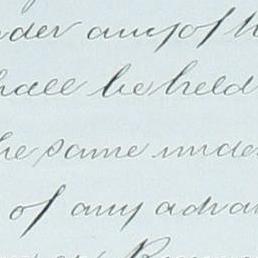 under any of th
shall be held
the same under
of any advan